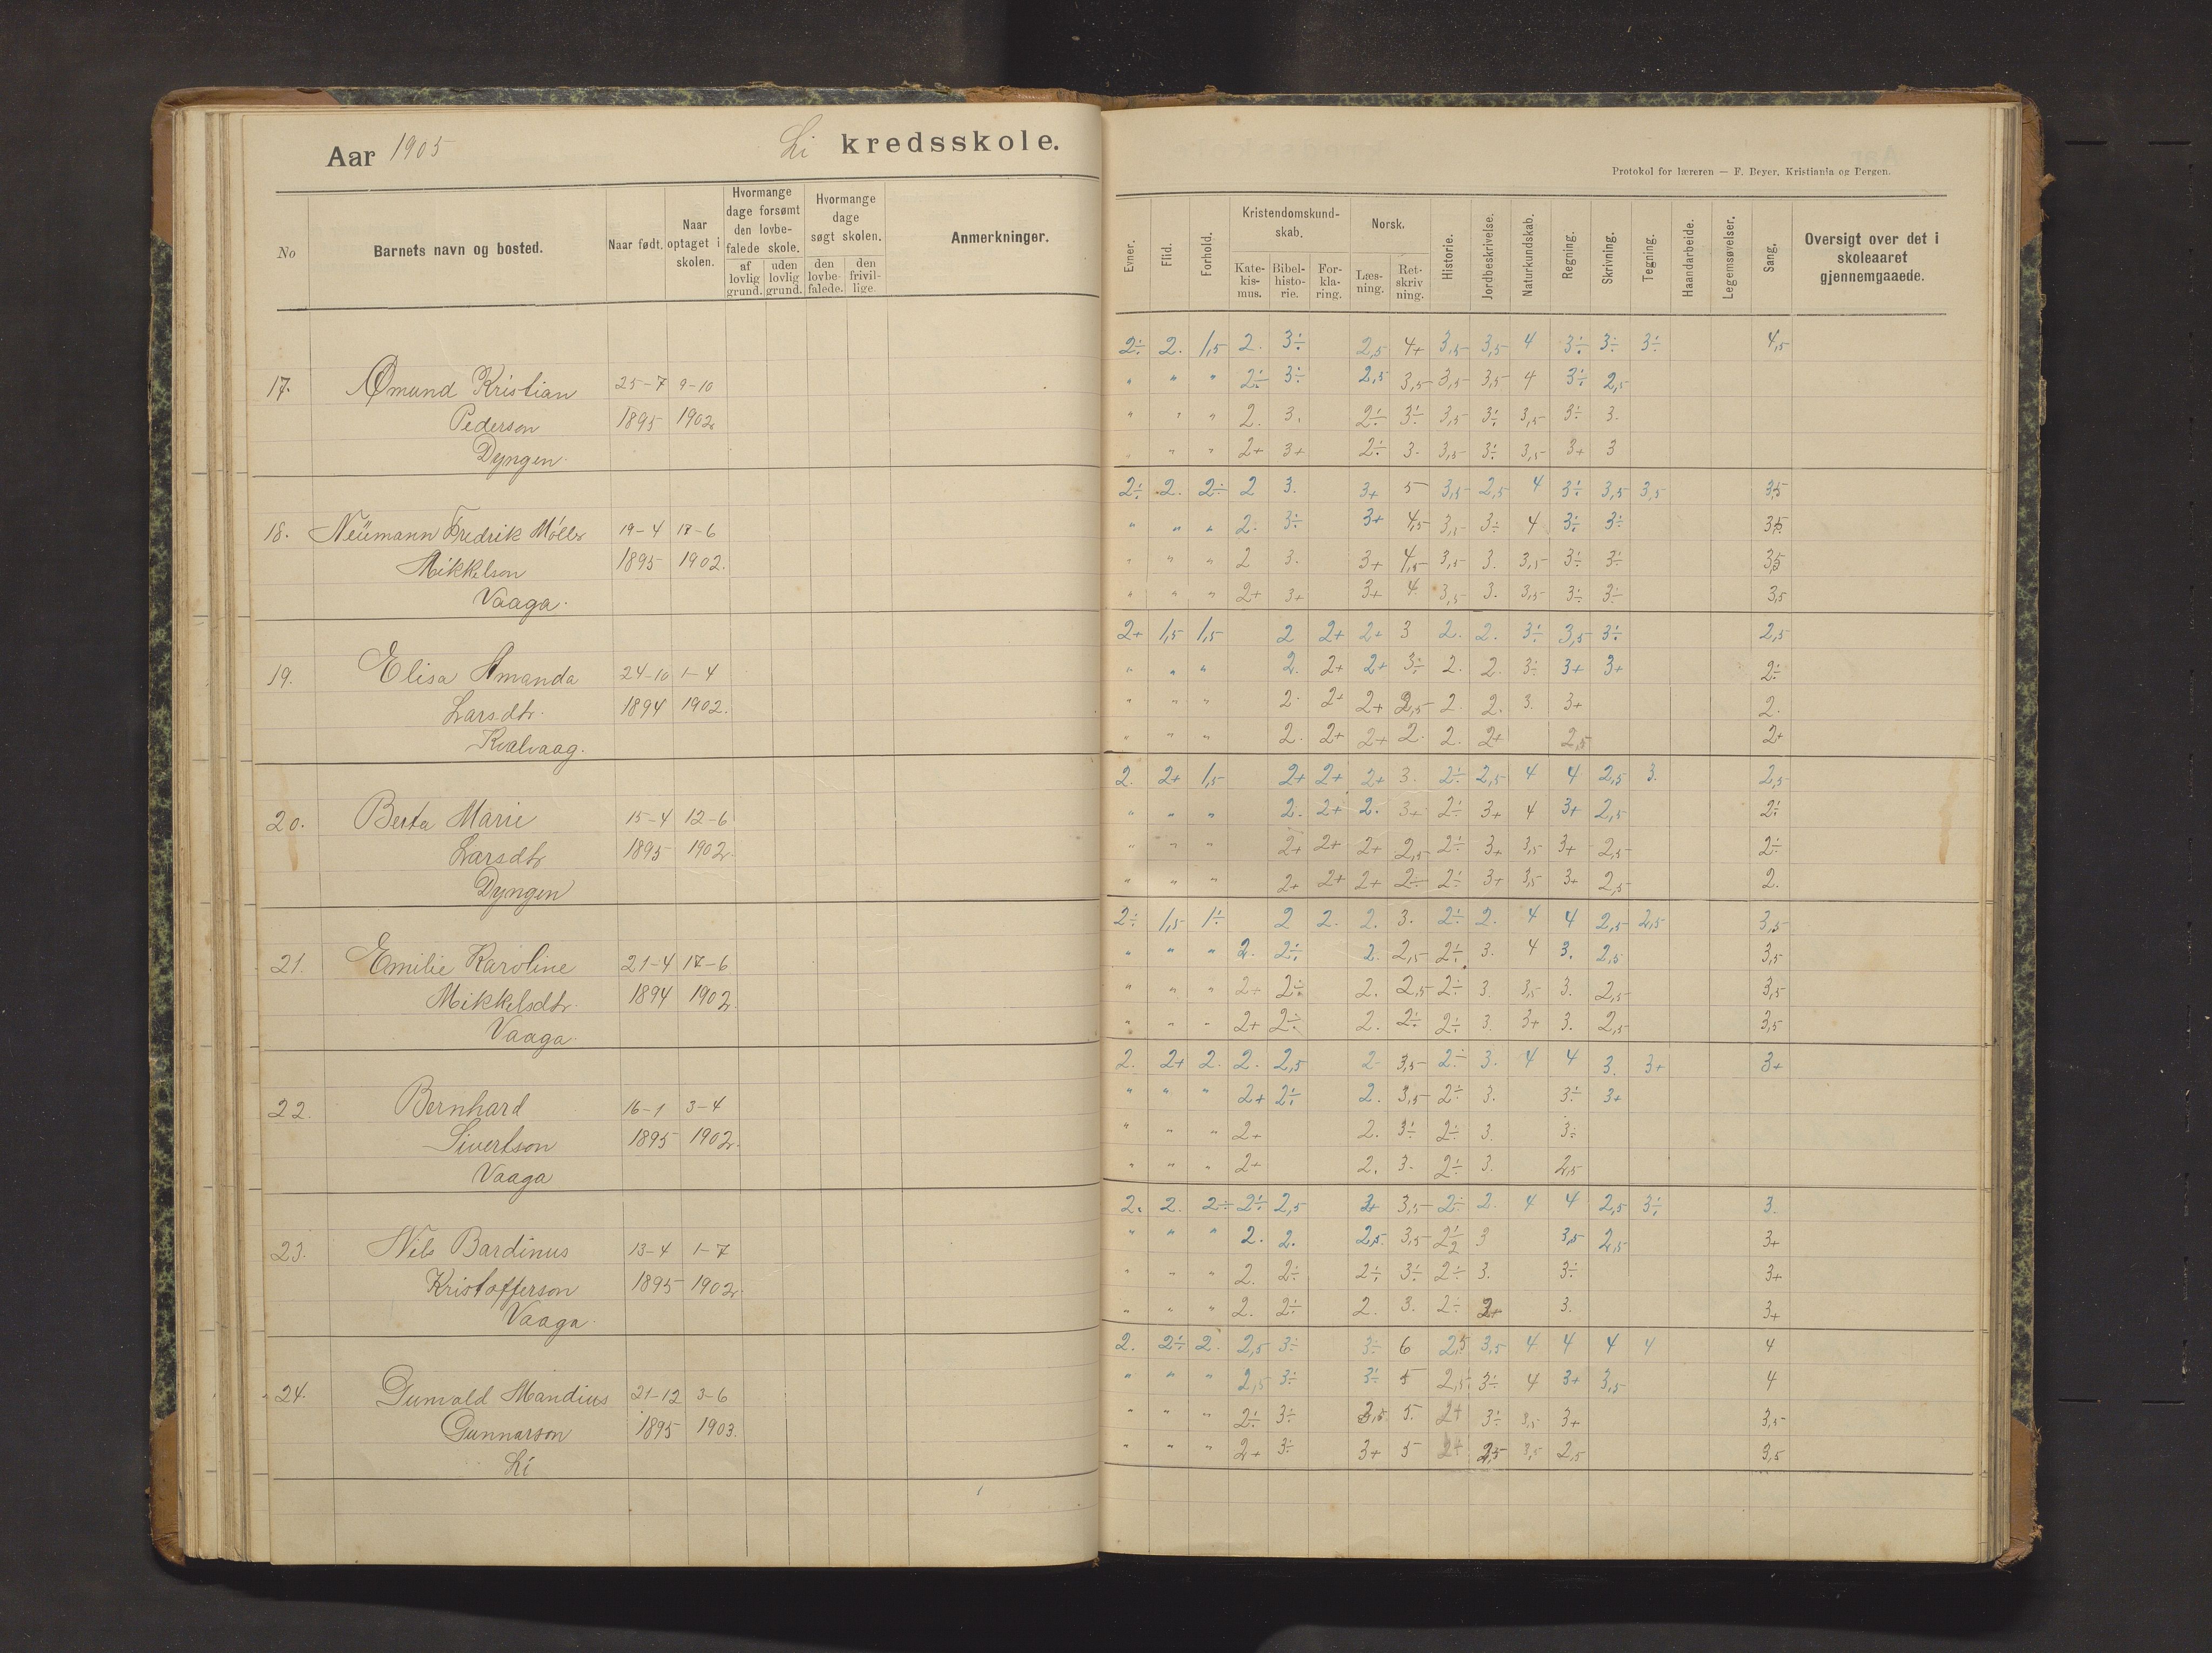 Aar 1905
Li kredsskole.
No
Barnets navn og bosted.
Naar født.
Naar optaget i skolen.
Hvormange dage forsømt den lovbefalede skole.
af lovlig grund.
uden lovlig grund.
Hvormange dage søgt skolen.
den lovbefalede.
den frivillige.
Anmerkninger.
17. Omund Kristian 25-7 9-10
Pederson 1895 1902
Dyngen.
18. Neümann Fredrik Møller 19-4 17-6
Mikkelson 1895 1902.
Vaaga.
19. Elisa Amanda 24-10 1-4
Larsdtr. 1894 1902.
Kvalvaag.
20. Berta Marie 15-4 12-6
Larsdtr 1895 1902.
Dyngen
21. Emilie Karoline 21-4 17-6
Mikkelsdtr. 1894 1902.
Vaaga.
22. Bernhard 16-1 3-4
Sivertson 1895 1902.
Vaaga
23. Nils Bardinus 13-4 1-7
Kristofferson 1895 1902.
Vaaga.
24. Gunvald Mandius 21-12 3-6
Gunnarson 1895 1903.
Li
Protokol for læreren — F. Beyer, Kristiania og Bergen.
Evner.
Flid.
Forhold.
Kristendomskundskab.
Katekismus.
Bibelhistorie.
Forklaring.
Norsk.
Læsning.
Retskrivning.
Historie.
Jordbeskrivelse.
Naturkundskab.
Regning.
Skrivning.
Tegning.
Haandarbeide.
Legemsøvelser.
Sang.
Oversigt over det i skoleaaret gjennemgaaede.
2÷ 2. 1,5 2. 3÷ 2,5 4+ 3,5 3,5 4 3÷ 3÷ 3÷ 4,5
" " " 2÷ 3÷ 2,5 3,5 3,5 3,5 4 3÷ 2,5
" " " 2. 3. 2÷ 3÷ 3,5 3÷ 3,5 3÷ 3.
" " " 2+ 3+ 2÷ 3. 3,5 3÷ 3,5 3+ 3
2÷ 2. 2÷ 2 3. 3+ 5 3,5 2,5 4 3÷ 3,5 3,5 3,5
" " " 2. 3÷ 3+ 4,5 3,5 3÷ 4 3÷ 3÷ 3,5
" " " 2 3. 3+ 4,5 3,5 3. 3,5 3÷ 3÷ 3,5
" " " 2+ 3+ 3+ 4 3,5 3. 3,5 3÷ 3÷ 3,5
2+ 1,5 1,5 2 2+ 2+ 3 2. 2. 3÷ 3,5 3÷ 2,5
" " " 2. 2+ 2+ 3÷ 2. 2. 3÷ 3+ 3+ 2÷
" " " 2. 2+ 2+ 2,5 2. 2. 3. 3+ 2.
" " " 2. 2+ 2+ 2. 2. 2+ 2,5 2+
2. 2+ 1,5 2+ 2+ 2+ 3. 2÷ 2,5 4 4 2,5 3. 2,5
" " " 2. 2+ 2. 3+ 2÷ 3+ 4 3+ 2,5 2÷
" " " 2+ 2+ 2+ 2,5 2÷ 3+ 3,5 3+ 2,5 2÷
" " " 2+ 2+ 2+ 2÷ 2÷ 3+ 3,5 3+ 2,5 2.
2÷ 1,5 1÷ 2 2. 2. 3. 2÷ 2. 4 4 2,5 2,5 3,5
" " " 2. 2÷ 2. 2,5 2÷ 3. 4 3. 2,5 3,5
" " " 2÷ 2÷ 2. 2,5 2÷ 3. 3,5 3. 2,5 3,5
" " " 2+ 2÷ 2. 2÷ 2÷ 3. 3+ 3. 2,5 3,5
2. 2+ 2. 2. 2,5 2 3,5 2÷ 3. 4 4 3. 3+ 3+
" " " 2+ 2÷ 2. 3,5 2÷ 3. 3÷ 3+
" " " 2+ 2. 3÷ 2÷ 3. 3÷
" " " 2+ 2. 3. 2÷ 3. 2,5
2. 2. 2÷ 2÷ 2,5 3,5 2÷ 2. 4 4 2,5 3÷ 3.
" " " 2. 2. 2,5 3,5 3 3,5 2,5 3+
" " " 2. 2÷ 2÷ 3÷ 2÷ 3. 3÷ 3+
" " " 2. 2÷ 2. 3. 2÷ 3. 3+
2. 2÷ 2. 2,5 3÷ 3÷ 6 2,5 3,5 4 4 4 4 4
" " " 2,5 3÷ 3÷ 5 2,5 3÷ 4 3+ 3,5 4
" " " 2÷ 3÷ 3,5 5. 2+ 3÷ 3,5 3+ 3,5
" " " 2+ 3÷ 3+ 5 2+ 2,5 3,5 2,5 3,5